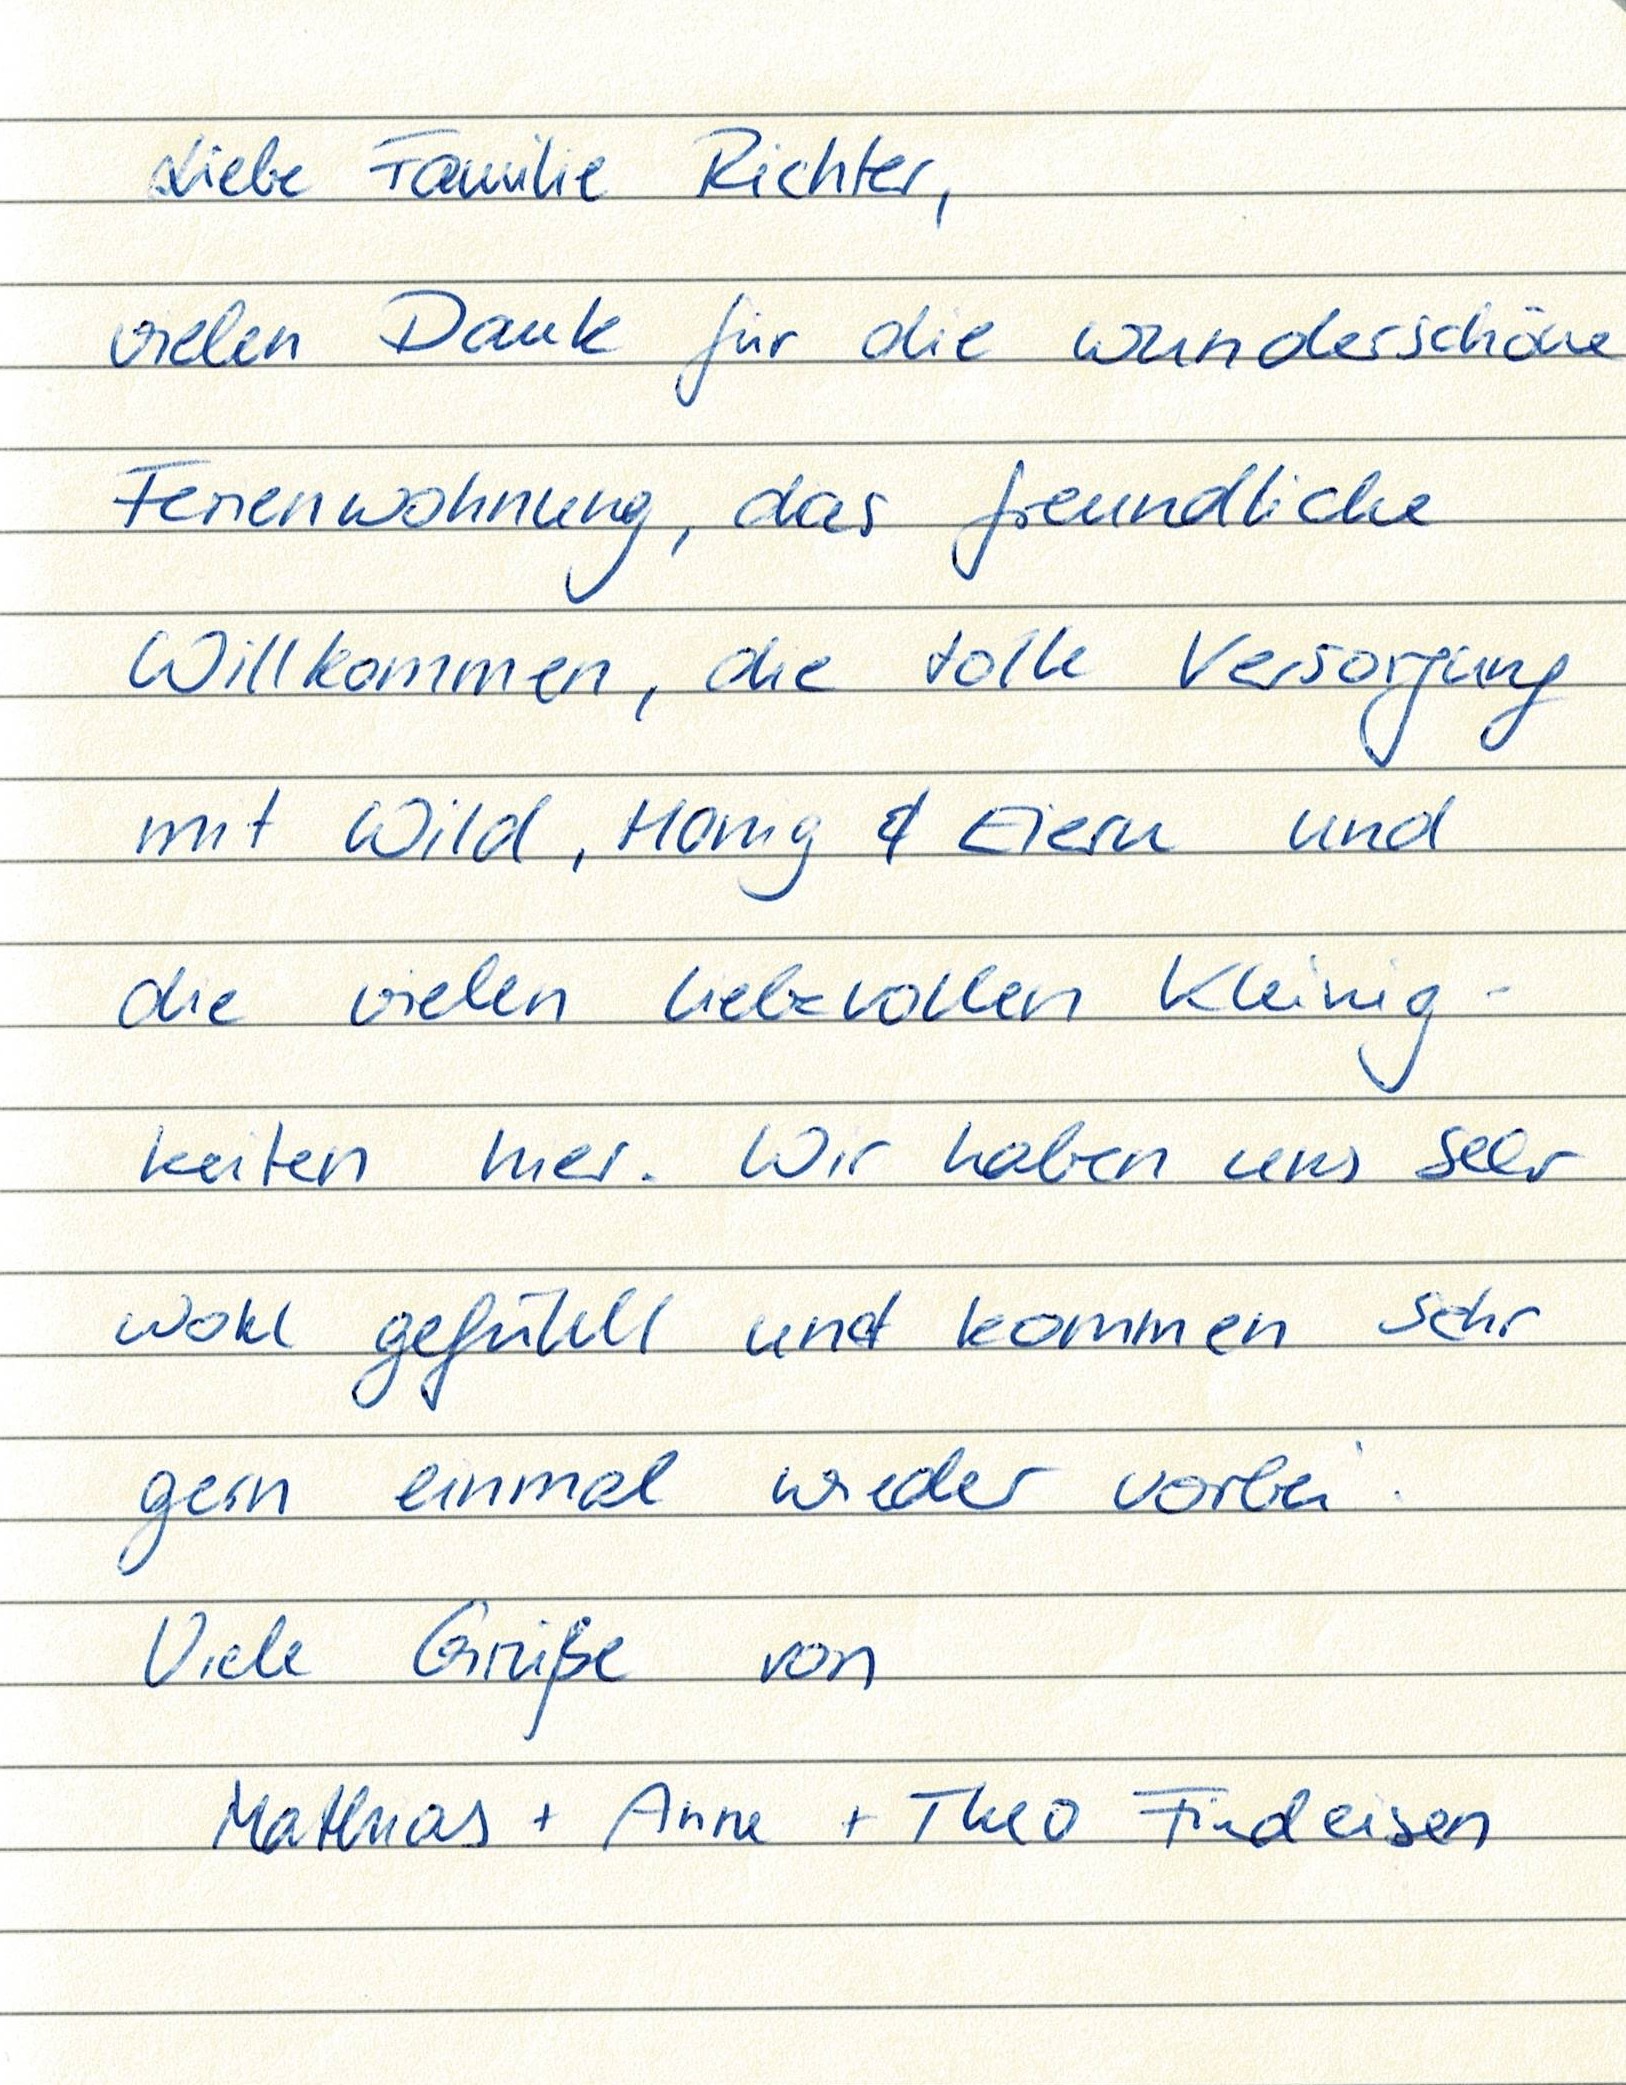 Liebe Familie Richter,
vielen Dank für die wunderschöne
Ferienwohnung, das freundliche
Willkommen, die tolle Versorgung
mit Wild, Honig & Eiern und
die vielen liebevollen Kleinig-
keiten hier. Wir haben uns sehr
wohl gefühlt und kommen sehr
gern einmal wieder vorbei.
Viele Grüße von
Mathias + Anne + Theo Findeisen